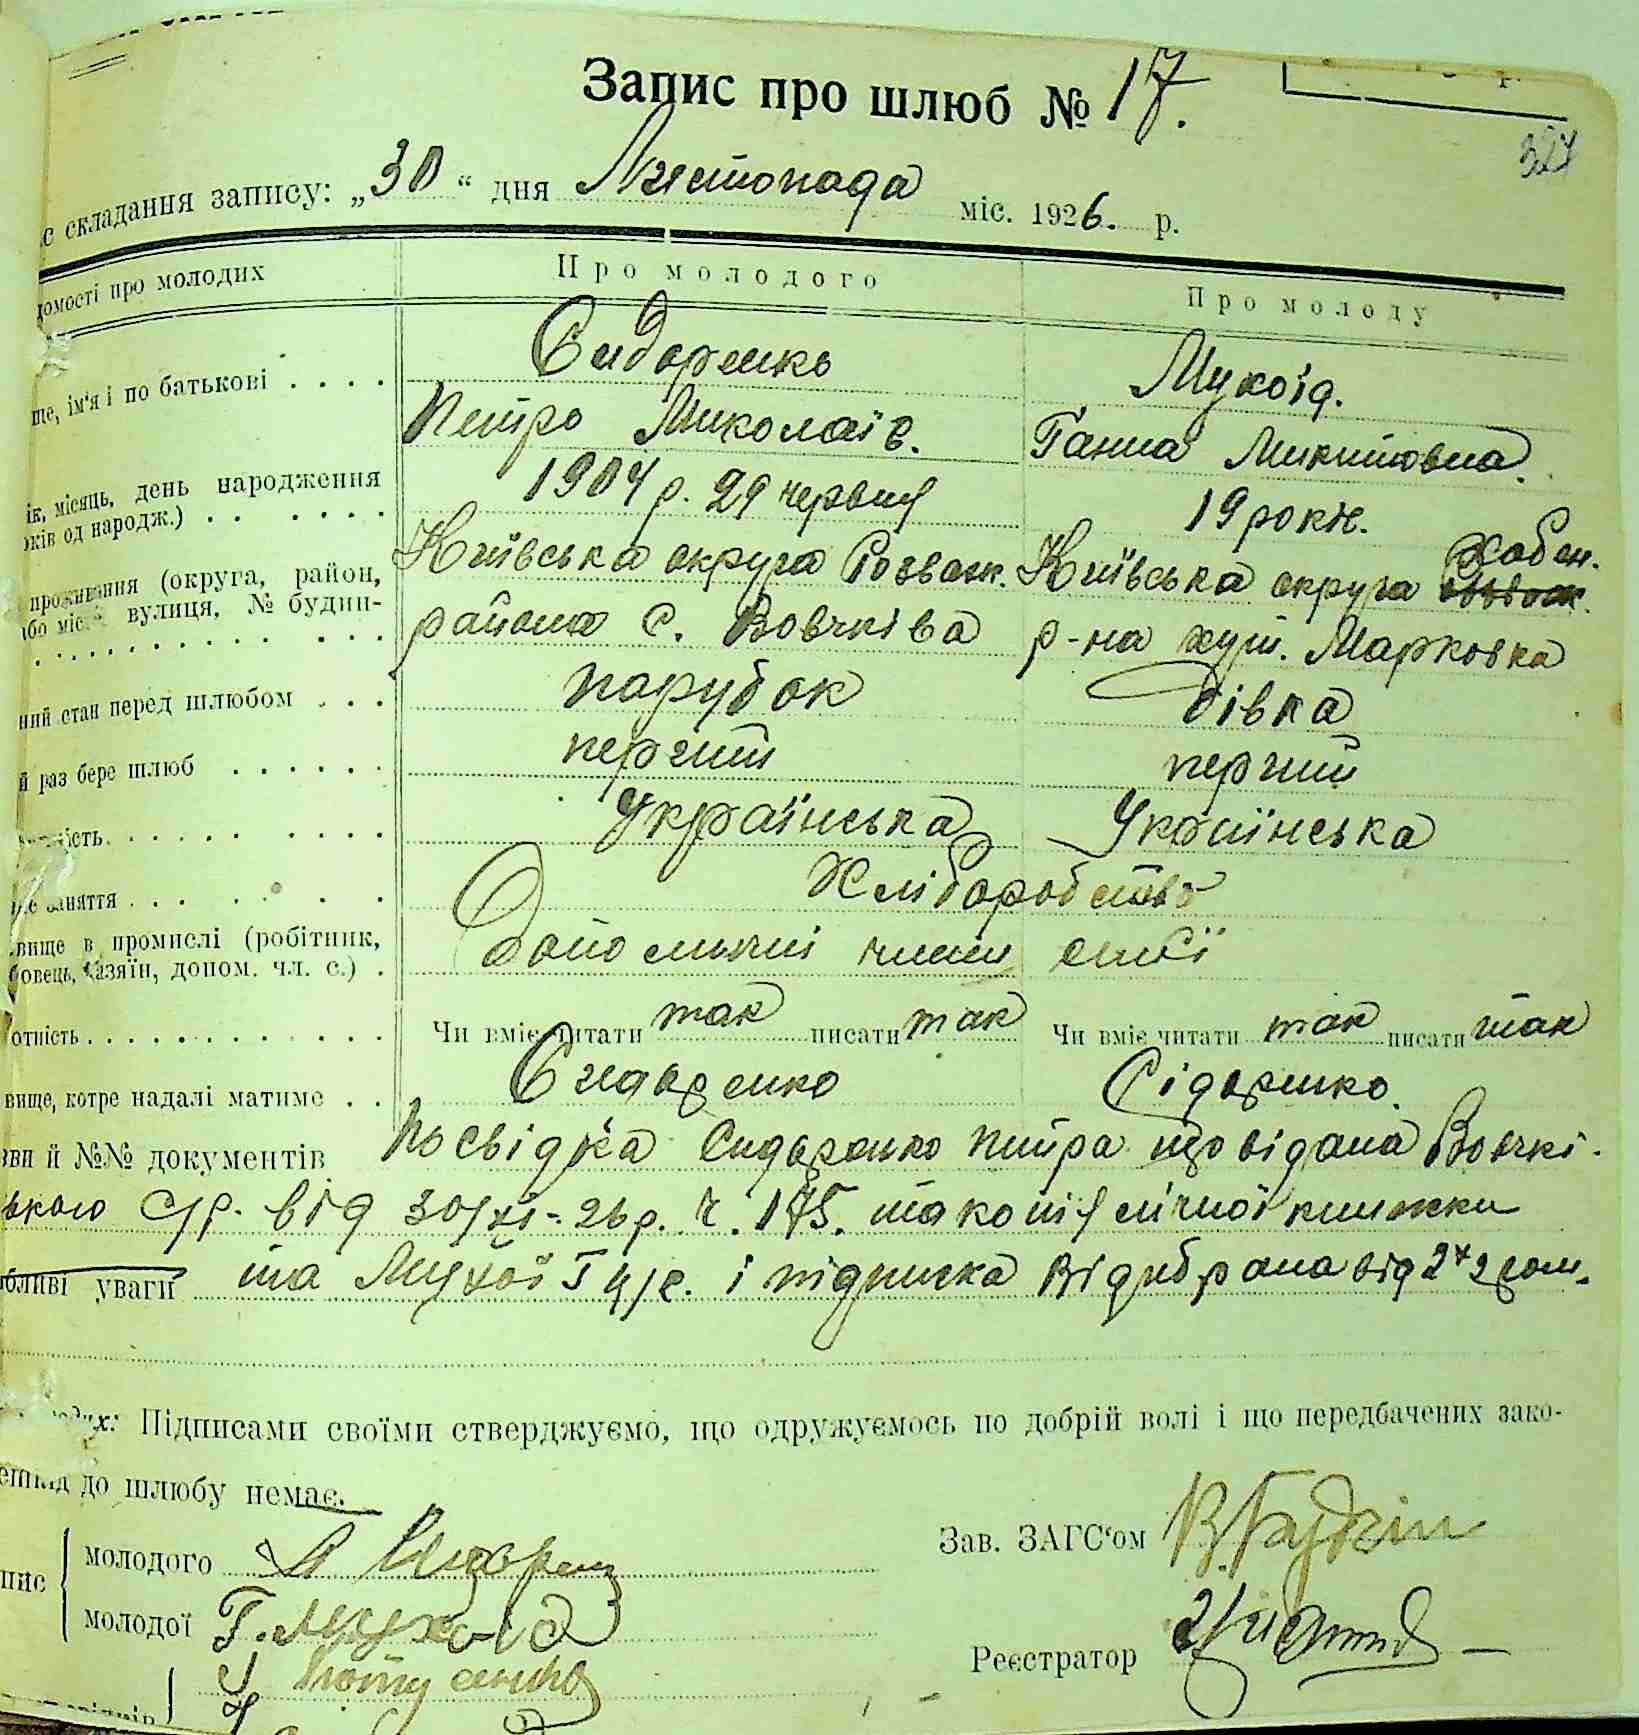 Запис про шлюб № 17.
327
с складання запису: „30“ дня Листопада міс. 1926. р.
домості про молодих Про молодого Про молоду
ще, ім'я і по батькові . . . . Сидоренко Мукоїд.
Петро Миколаїв. Ганна Микитовна.
ік, місяць, день народження 1904 р. 29 червня 19 років.
оків од народж.) . . . . . .
проживання (округа, район, Київська округа Розваж. Київська округа Хабен.
або міс. вулиця, № будин- района с. Вовчківа р-на хут. Марковка
ний стан перед шлюбом . . . парубок дівка
й раз бере шлюб . . . . . . перший перший
ість. . . . . . . . . . Українська Українська
заняття . . . . . . Хліборобство
вище в промислі (робітник,
овець, хазяїн, допом. чл. с.) . Допомічні члени сім'ї
отність . . . . . . . . . . . . Чи вміє читати так писати так Чи вміє читати так писати так
вище, котре надалі матиме . . Сидоренко Сідоренко.
зви й №№ документів Посвідка Сидоренко Петра що відана Вовчкі-
ського с/р. від 30/XI-26 р. ч. 175. та копія лічної книжки
бливі уваги та Мукої і підписка відибрана від 2х
х: Підписами своїми стверджуємо, що одружуємось по добрій волі і що передбачених зако-
до шлюбу немає.
пис молодого
молодої Г. Мукоїд
Зав. ЗАГС'ом
Реєстратор